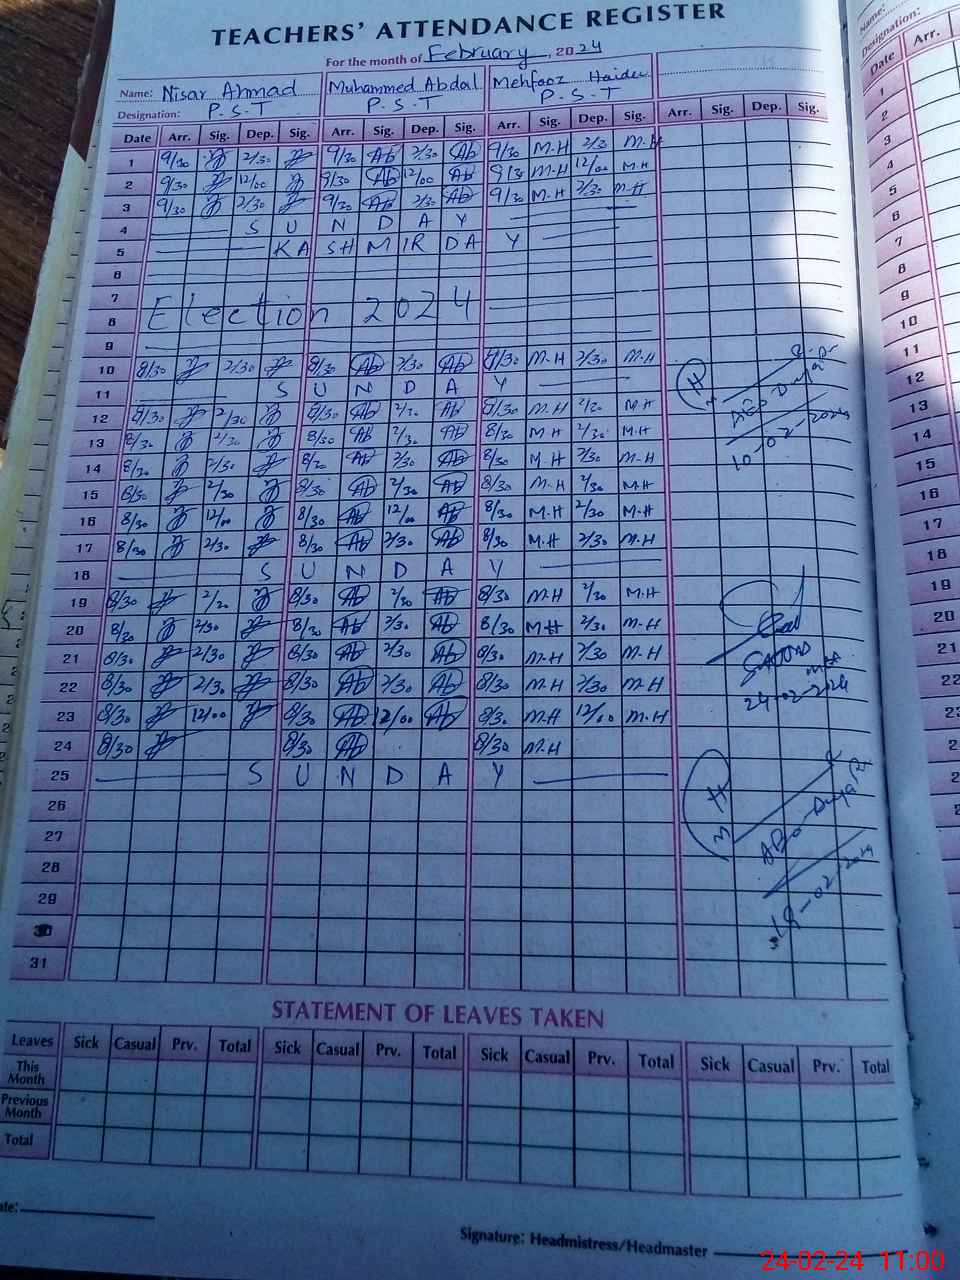 TEACHERS' ATTENDANCE REGISTER
For the month of February, 2024
Name: Nisar Ahmad Muhammed Abdal Mehfooz Haider
Designation: P.S.T P.S.T P.S.T
Date Arr. Sig. Dep. Sig. Arr. Sig. Dep. Sig. Arr. Sig. Dep. Sig. Arr. Sig. Dep. Sig.
1 9/30 2/30 9/30 Ab 2/30 Ab 9/30 M.H 2/30 M.H
2 9/30 12/00 9/30 Ab 12/00 Ab 9/30 M.H 12/00 M.H
3 9/30 2/30 9/30 Ab 2/30 Ab 9/30 M.H 2/30 M.H
4 SUNDAY
5 KASHMIR DAY
6
7
8 Election 2024
9
10 8/30 2/30 8/30 Ab 2/30 Ab 8/30 M.H 2/30 M.H
11 SUNDAY
12 8/30 2/30 8/30 Ab 2/30 Ab 8/30 M.H 2/30 M.H
13 8/30 2/30 8/30 Ab 2/30 Ab 8/30 M.H 2/30 M.H
14 8/30 2/30 8/30 Ab 2/30 Ab 8/30 M.H 2/30 M.H
15 8/30 2/30 8/30 Ab 2/30 Ab 8/30 M.H 2/30 M.H
16 8/30 12/00 8/30 Ab 12/00 Ab 8/30 M.H 2/30 M.H
17 8/30 2/30 8/30 Ab 2/30 Ab 8/30 M.H 2/30 M.H
18 SUNDAY
19 8/30 2/30 8/30 Ab 2/30 Ab 8/30 M.H 2/30 M.H
20 8/30 2/30 8/30 Ab 2/30 Ab 8/30 M.H 2/30 M.H
21 8/30 2/30 8/30 Ab 2/30 Ab 8/30 M.H 2/30 M.H
22 8/30 2/30 8/30 Ab 2/30 Ab 8/30 M.H 2/30 M.H
23 8/30 12/00 8/30 Ab 12/00 Ab 8/30 M.H 12/00 M.H
24 8/30 8/30 Ab 8/30 M.H
25 SUNDAY
26
27
28
29
30
31
10-02-2024
24-02-2024
18-02-2024
STATEMENT OF LEAVES TAKEN
Leaves Sick Casual Prv. Total Sick Casual Prv. Total Sick Casual Prv. Total Sick Casual Prv. Total
This Month
Previous Month
Total
Signature: Headmistress/Headmaster
24-02-24 11:00
Name:
Designation:
Date Arr.
1
2
3
4
5
6
7
8
9
10
11
12
13
14
15
16
17
18
19
20
21
22